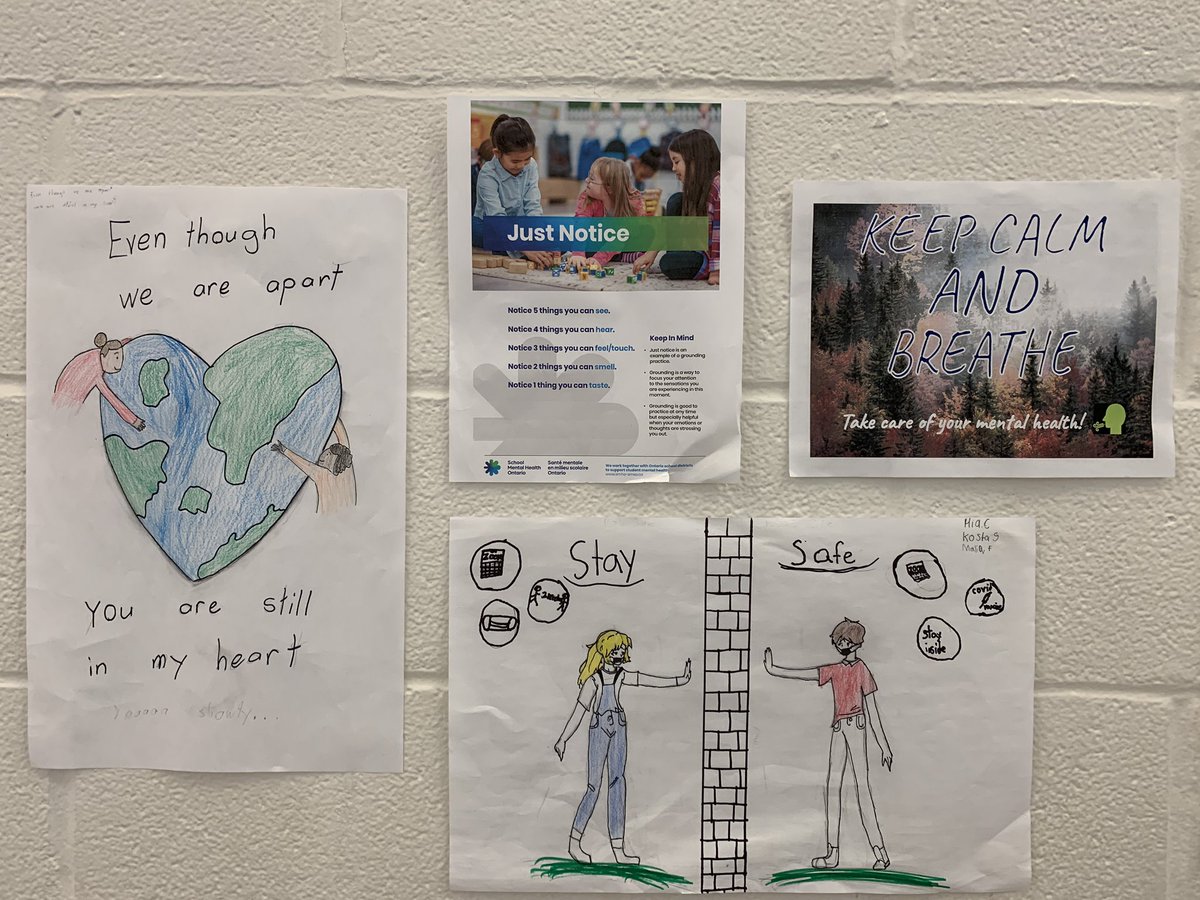 Even though
we are apart
You are still
in my heart
Just Notice
Notice 5 things you can see.
Notice 4 things you can hear.
Notice 3 things you can feel/touch.
Notice 2 things you can smell.
Notice 1 thing you can taste.
Keep In Mind
Just notice is an
example of a grounding
practice.
Grounding is a way to
focus your attention
to the sensations you
are experiencing in this
moment.
Grounding is good to
practice at any time
but especially helpful
when your emotions or
thoughts are stressing
you out.
School
Mental Health
Ontario
Santé mentale
en milieu scolaire
Ontario
We work together with Ontario school districts
to support student mental health
KEEP CALM
AND
BREATHE
Take care of your mental health!
Stay
Safe
Mia.C
Kosta S
covid
stay
inside